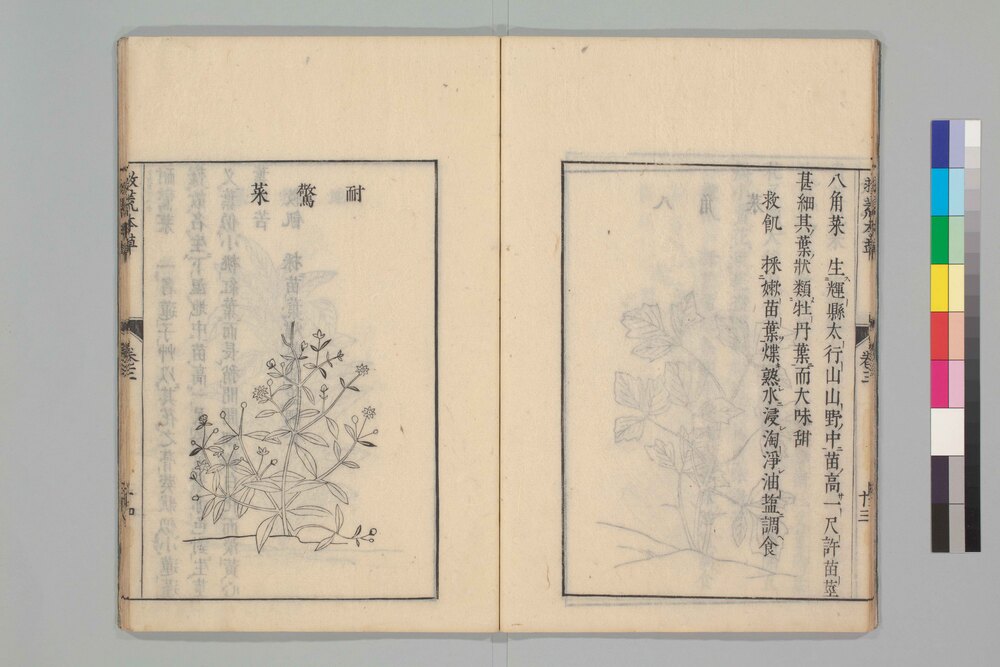 八角菜 生輝縣太行山山野中苗高一尺許苗莖
甚細其葉狀類牡丹葉而大味甜
救飢 採嫩苗葉煠熟水浸淘淨油鹽調食
卷三
十三
耐驚菜
救荒本草
卷三